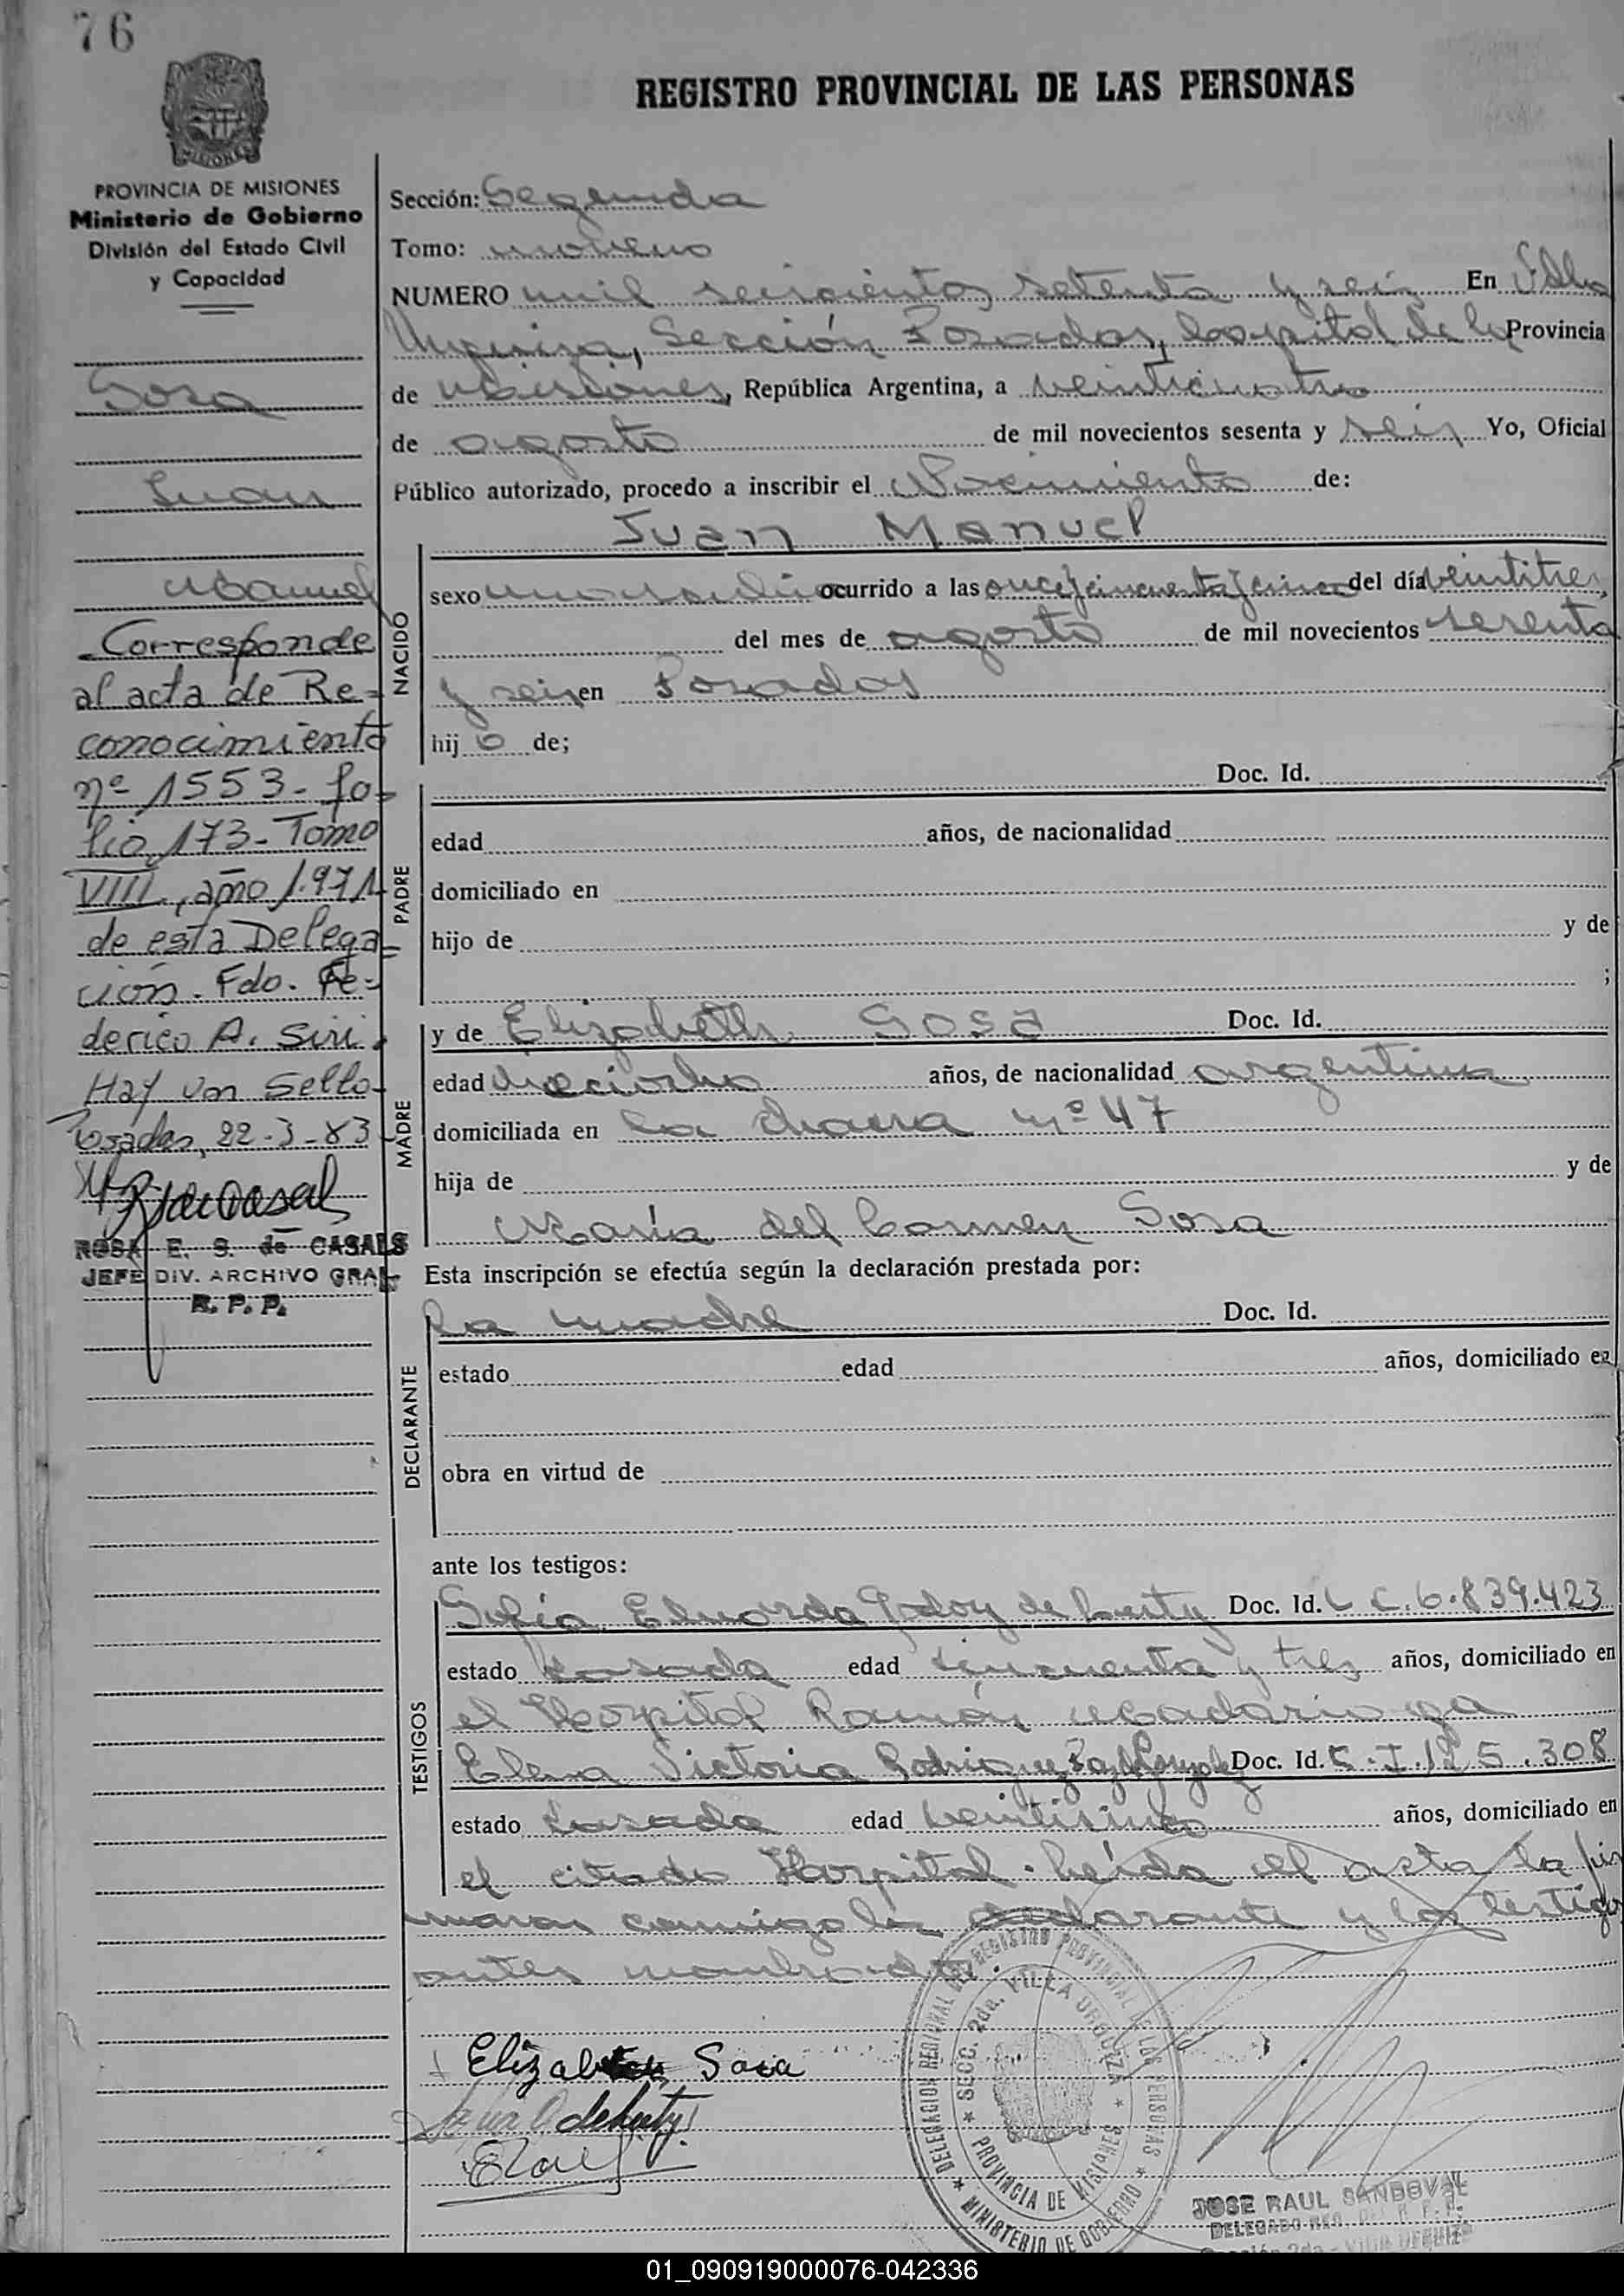 76
REGISTRO PROVINCIAL DE LAS PERSONAS
MISIONES
PROVINCIA DE MISIONES
Ministerio de Gobierno
División del Estado Civil
y Capacidad
Sosa
Juan
Manuel
Corresponde
al acta de Re=
conocimiento
nº 1553- fo-
lio 173- Tomo
VIII, año 1.971
de esta Delega=
ción. Fdo. Fe=
derico A. Siri.
Hay un Sello-
Posadas, 22-3-83
ROSA E. S. de CASALS
JEFE DIV. ARCHIVO GRAL
R. P. P.
Sección: Segunda
Tomo: noveno
NUMERO mil seiscientos setenta y seis En Villa
Urquiza, Sección Posadas, Capital de la Provincia
de Misiones, República Argentina, a veinticuatro
de agosto de mil novecientos sesenta y seis Yo, Oficial
Público autorizado, procedo a inscribir el Nacimiento de:
Juan Manuel
NACIDO
sexo masculino ocurrido a las once y cincuenta y cinco del día veintitres
del mes de agosto de mil novecientos sesenta
y seis en Posadas
hijo de;
PADRE
Doc. Id.
edad años, de nacionalidad
domiciliado en
hijo de y de
;
MADRE
y de Elizabeth Sosa Doc. Id.
edad dieciocho años, de nacionalidad argentina
domiciliada en la chacra nº 47
hija de y de
María del Carmen Sosa
Esta inscripción se efectúa según la declaración prestada por:
DECLARANTE
la madre Doc. Id.
estado edad años, domiciliado en
obra en virtud de
ante los testigos:
TESTIGOS
Sofía Eduarda Godoy de Doc. Id. L C. 6.839.423
estado casada edad cincuenta y tres años, domiciliado en
el Hospital Ramón Madariaga
Elena Victoria Rodriguez Doc. Id. C.I. 125.308
estado casada edad veinticinco años, domiciliado en
el citado Hospital. Leída el acta la fir
maron conmigo la declarante y los testigos
antes nombrados.
Elizabeth Sosa
DELEGACION REGIONAL DEL REGISTRO PROVINCIAL DE LAS PERSONAS
MINISTERIO DE GOBIERNO
SECC. 2da. VILLA URQUIZA
PROVINCIA DE MISIONES
JOSE RAUL SANDOVAL
DELEGADO REG. DEL R. P. P.
Sección 2da - VILLA URQUIZA
01_090919000076-042336